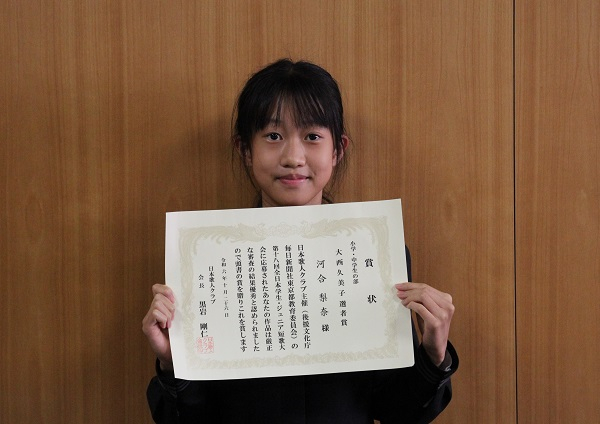 賞状
小学・中学生の部
大西久美子選者賞
河合梨奈様
日本歌人クラブ主催(後援文化庁
毎日新聞社東京都教育委員会)の
第十八回全日本学生・ジュニア短歌大
会に応募されたあなたの作品は厳正
な審査の結果優秀と認められました
ので頭書の賞を贈りこれを賞します
令和六年十月二十六日
日本歌人クラブ
会長 黒岩剛仁